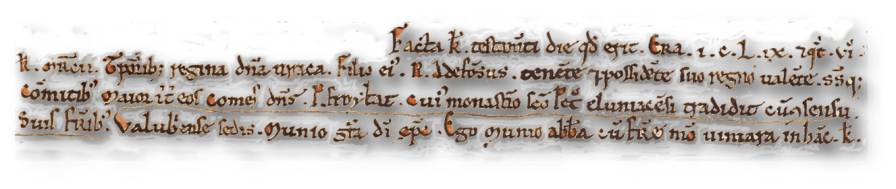 Facta k̄. testam̄ti die q̄d erit. Era. i. c. L. ix. 7 q̄t. vi.
k̄. Temporib; regina dn̄a urraca. Filio ei'. R. Adefōsus. tenēte 7 possidēte suo regno ualēte. s̄s q;
Comitib' maior īt eos comes dn̄s. P. froylat. cui' monast̄io sc̄o Pet̄ cluniacēsi tradidit cū
Suis fr̄ib'. Valub'ense sedis. Munio gr̄a dī ep̄e. Ego munio abb̄a cū fr̄e mō uimara in hāc. k̄.